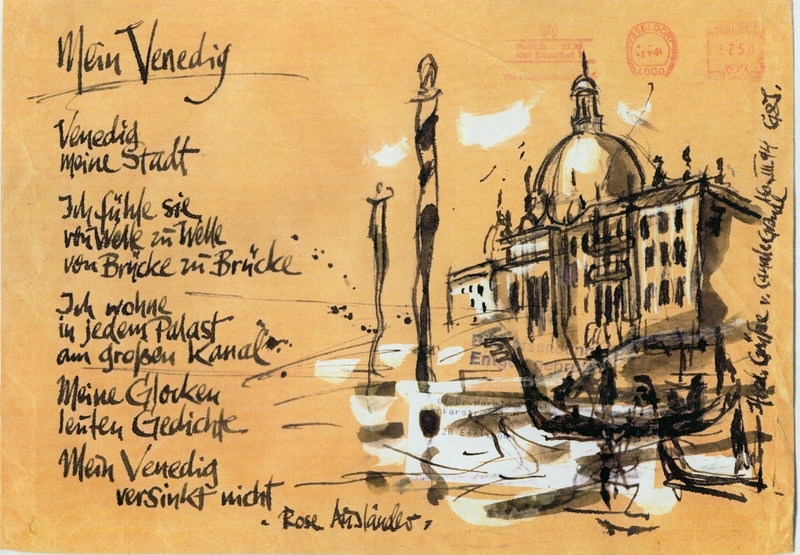 Mein Venedig
Venedig
meine Stadt
Ich fühle sie
von Welle zu Welle
von Brücke zu Brücke
Ich wohne
in jedem Palast
am großen Kanal
Meine Glocken
läuten Gedichte
Mein Venedig
versinkt nicht
- Rose Ausländer -
DÜSSELDORF
4000